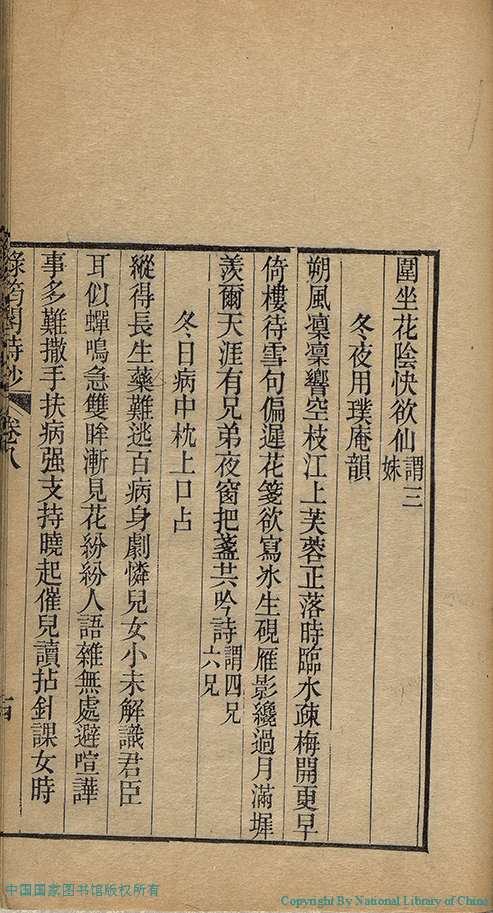 圍坐花陰快欲仙謂三妹
冬夜用璞庵韻
朔風凜凜響空枝江上芙蓉正落時臨水疎梅開更早
倚樓待雪句偏遲花箋欲寫冰生硯雁影纔過月滿墀
羨爾天涯有兄弟夜窗把盞共吟詩謂四兄六兄
冬日病中枕上口占
縱得長生藥難逃百病身劇憐兒女小未解識君臣
耳似蟬鳴急雙眸漸見花紛紛人語雜無處避喧譁
事多難撒手扶病强支持曉起催兒讀拈針課女時
綠筠閣詩鈔 卷八
中国国家图书馆版权所有
Copyright By National Library of China